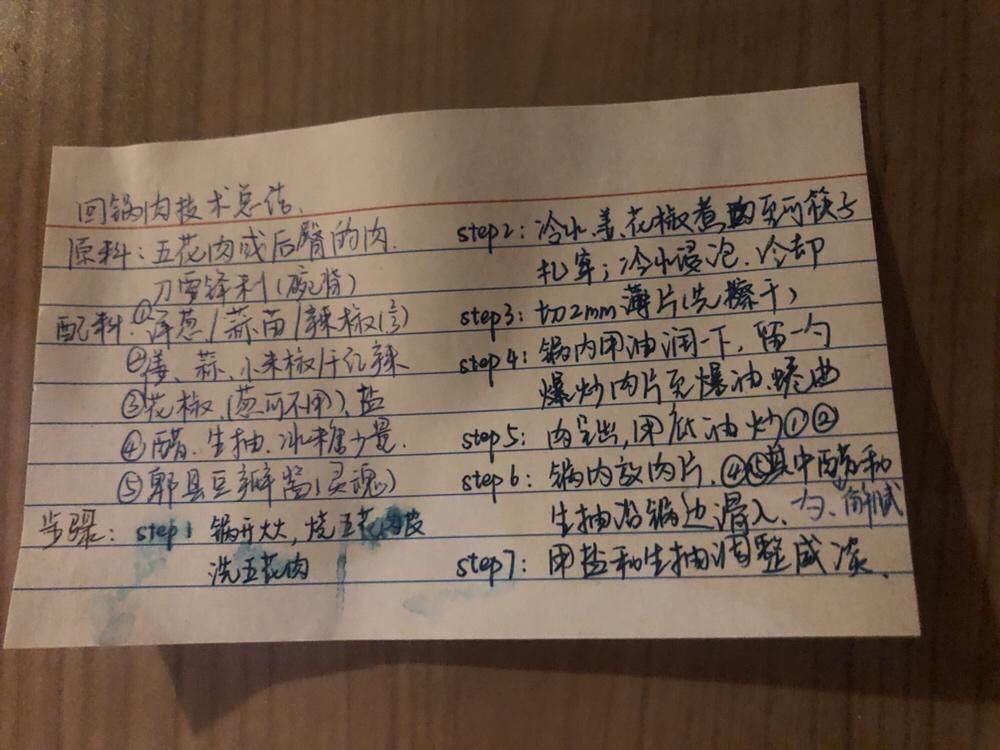 回锅肉技术总结.
原料：五花肉或后臀的肉.
刀要锋利（碗背）
配料：①洋葱/蒜苗/辣椒
②姜、蒜、小米椒/干红辣
③花椒、(葱可不用)、盐
④醋、生抽、冰糖少量.
⑤郫县豆瓣酱(灵魂)
步骤： step1 锅开大火，烧五花肉皮
洗五花肉
step2：冷水、姜、花椒煮肉至可筷子
扎穿；冷水浸泡、冷却
step3：切2mm薄片(先擦干)
step4：锅内用油润一下，留一勺
爆炒肉片至爆油、蜷曲
step5：肉呈出，用底油炒①②
step6：锅内放肉片、④⑤其中醋和
生抽沿锅边滑入、
step7：用盐和生抽调整咸淡.